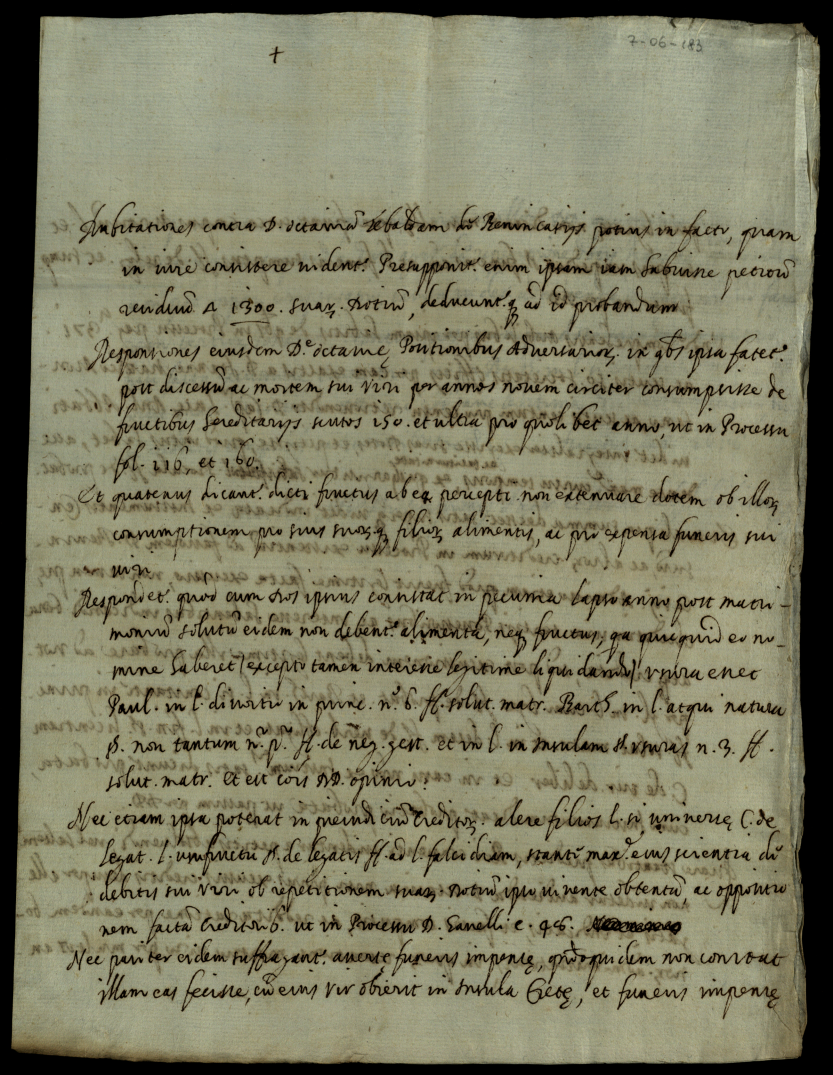 7-06-183
+
Dubitationes contra D. Octaviã Sebaldam de Benincasijs potius in facto, quam
in iure consistere vident.r Presupponit.r enim ipsam iam habuisse petiorũ
residuũ 1300. suar. Dotiũ, deducunt.r q ad id probandum
Responsiones eiusdem D.e Octavię Positionibus Adversarior. in qbs ipsa fatet.r
post discessũ ac mortem sui viri per annos novem circiter consumpsisse de
fructibus hereditarijs scutos 150. et ultra pro quolibet anno, ut in Processu
fol. 116, et 160.
Et quatenus dicant.r dicti fructus ab ea percepti non extenuare dotem ob illor.
consumptionem pro suis suor.q filior. alimentis, ac pro expensa funeris sui
viri
Respondet.r quòd cum Dos ipsius consistat in pecunia lapso anno post matri-
moniũ solutũ eidem non debent.r alimenta, neq fructus, qa quicquid eo no-
mine haberet (excepto tamen interesse legitime liquidando) usura esset
Paul. in l. divortio in princ. n.o 6. ff. solut. matr. Barth. in l. atqui natura
§. non tantum n.o p.o ff. de neg. gest. et in l. in insulam §. usuras n. 3. ff.
solut. matr. et est cõis DD. opinio.
Nec etiam ipsa poterat in preiudiciũ Creditor. alere filios l. si universę C. de
legat. l. usufructu §. de legatis ff. ad l. falcidiam, stante max.e eius scientia de
debitis sui viri ob repetitionem suar. Dotiũ ipso vivente obtentã, ac oppositio
nem factã Creditorib. ut in Processu D. Savelli c. 48.
Nec pariter eidem suffragant.r asserte funeris impensę, quòd quidem non constat
illam eas fecisse, cũ eius vir obierit in Insula Cretę, et funeris impensę